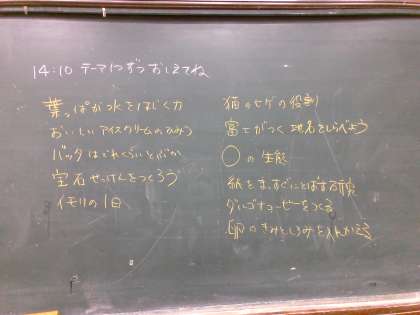 14:10 テーマ1つずつおしえてね
葉っぱが水をはじく力
おいしいアイスクリームのひみつ
バッタはどれくらいとぶか
宝石せっけんをつくろう
イモリの1日
猫のヒゲの役割
富士がつく地名をしらべよう
○の生態
紙をまっすぐにとばす研究
ダルゴナコーヒーをつくる
卵のきみとしろみを入れかえる